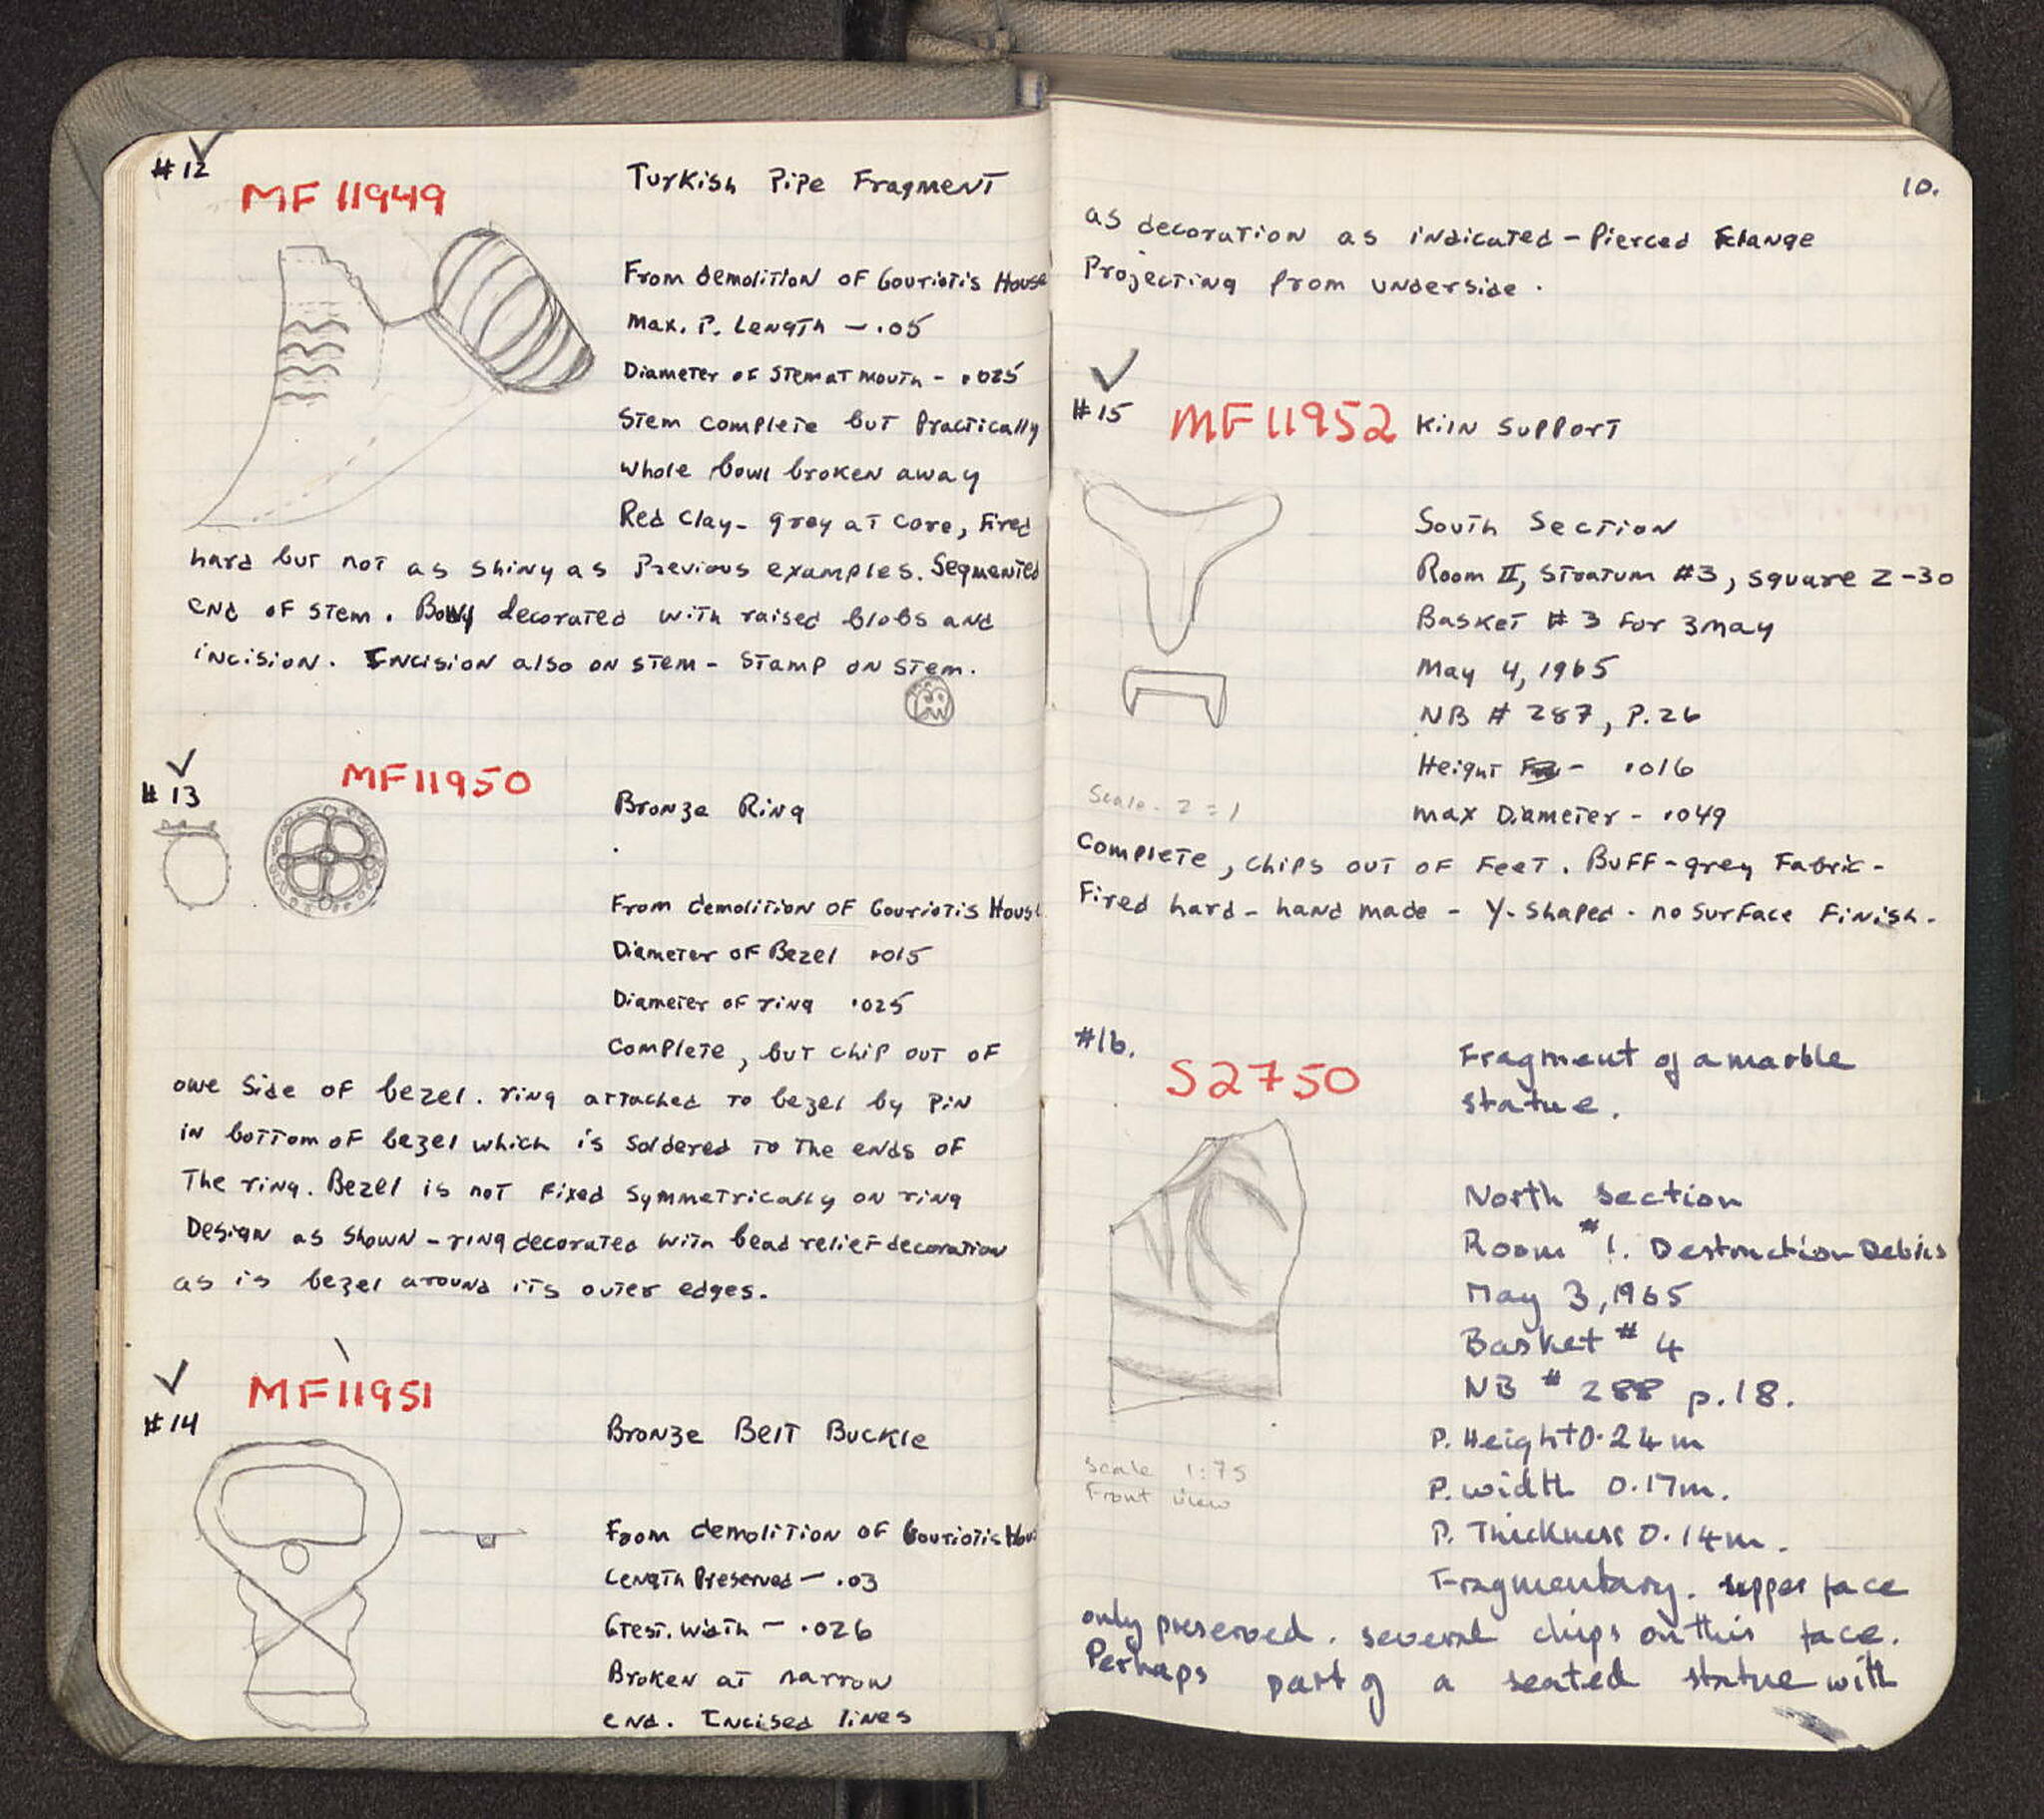 #12
MF 11949
Turkish Pipe Fragment
From demolition of Gouriotis House
Max. P. Length — .05
Diameter of stem at mouth - .025
Stem complete but Practically
whole bowl broken away
Red Clay - grey at core, Fired
hard but not as shiny as Previous examples. Segmented
end of stem. Bowl decorated with raised blobs and
incision. Incision also on stem - stamp on stem.
#13
MF 11950
Bronze Ring
From demolition of Gouriotis House
Diameter of Bezel .015
Diameter of ring .025
Complete, but chip out of
one side of bezel. ring attached to bezel by pin
in bottom of bezel which is soldered to the ends of
The ring. Bezel is not Fixed symmetrically on ring
Design as shown - ring decorated with bead relief decoration
as is bezel around its outer edges.
MF 11951
#14
Bronze Belt Buckle
From demolition of Gouriotis Hou
Length Preserved — .03
Grest. width — .026
Broken at narrow
end. Incised lines
10.
as decoration as indicated - Pierced Flange
Projecting from underside.
#15
MF 11952
Kiln Support
South Section
Room II, Stratum #3, square Z-30
Basket #3 for 3 may
May 4, 1965
NB # 287, P. 26
Height - .016
max Diameter - .049
Scale - 2 = 1
Complete, chips out of Feet. Buff-grey Fabric -
Fired hard - hand made - Y-shaped - no surface Finish.
#16.
S2750
Fragment of a marble
statue.
North section
Room #1. Destruction Debris
May 3, 1965
Basket # 4
NB # 288 p. 18.
P. Height 0.24 m
P. width 0.17m.
P. Thickness 0.14m.
Scale 1:75
Front view
Fragmentary. upper face
only preserved. several chips on this face.
Perhaps part of a seated statue with